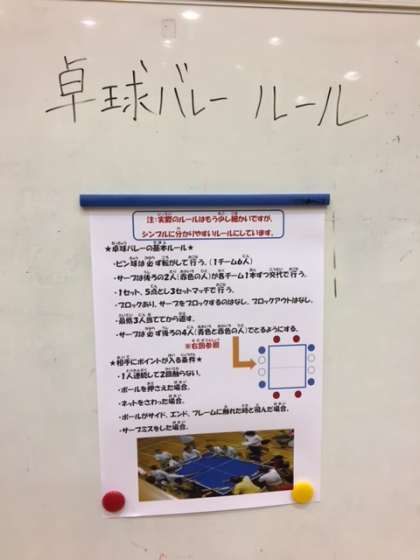 卓球バレー ルール
注：実際のルールはもう少し細かいですが、
シンプルに分かりやすいルールにしています。
★卓球バレーの基本ルール★
・ピン球は必ず転がして行う。（1チーム6人）
・サーブは後ろの2人（赤色の人）が各チーム1本ずつ交代で行う。
・1セット、5点とし3セットマッチで行う。
・ブロックあり。サーブをブロックするのはなし。ブロックアウトはなし。
・最低3人当ててから返す。
・サーブは必ず後ろの4人（青色と赤色の人）でとるようにする。
※右図参照
★相手にポイントが入る条件★
・1人連続して2回触らない。
・ボールを押さえた場合。
・ネットをさわった場合。
・ボールがサイド、エンド、フレームに触れた時と飛んだ場合。
・サーブミスをした場合。